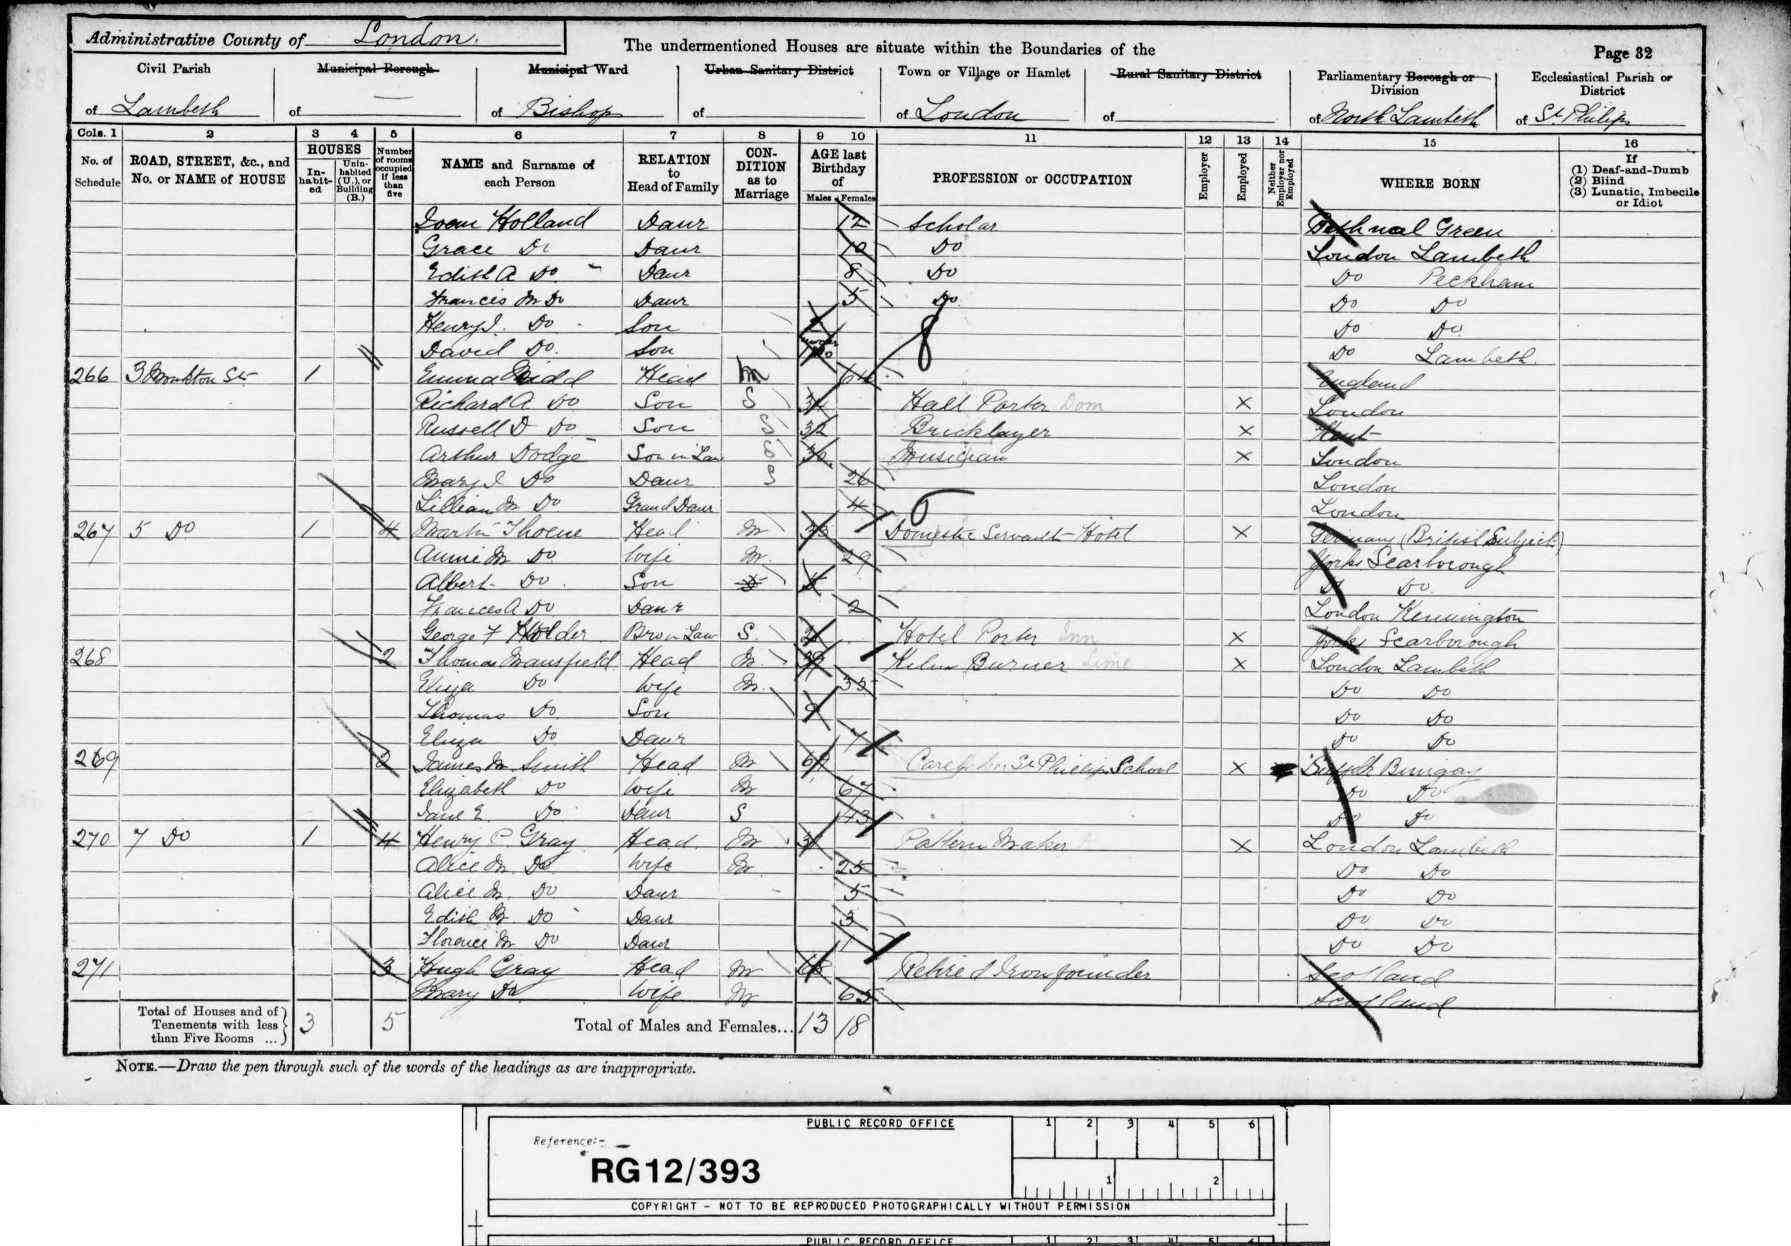 Administrative County of London.
The undermentioned Houses are situate within the Boundaries of the
Page 32
Civil Parish of Lambeth
Municipal Borough of —
Municipal Ward of Bishop
Urban Sanitary District of
Town or Village or Hamlet of London
Rural Sanitary District of
Parliamentary Borough or Division of North Lambeth
Ecclesiastical Parish or District of St Philips
Cols. 1 2 3 4 5 6 7 8 9 10 11 12 13 14 15 16
No. of Schedule
ROAD, STREET, &c., and No. or NAME of HOUSE
HOUSES
In-habit-ed
Unin-habited (U.), or Building (B.)
Number of rooms occupied if less than five
NAME and Surname of each Person
RELATION to Head of Family
CON-DITION as to Marriage
AGE last Birthday of
Males Females
PROFESSION or OCCUPATION
Employer
Employed
Neither Employer nor Employed
WHERE BORN
If (1) Deaf-and-Dumb (2) Blind (3) Lunatic, Imbecile or Idiot
Holland Daur 12 Scholar Bethnal Green
Grace Do Daur 10 Do London Lambeth
Edith A Do Daur 8 Do Do Peckham
Frances M Do Daur 5 Do Do Do
Henry J. Do Son Do Do
David Do. Son Do Lambeth
8
266 3 St 1 Emma Head 64 England
Richard A Do Son S Hall Porter Dom x London
Russell D Do Son S 32 Bricklayer x Kent
Arthur Dodge Son in Law S Musician x London
Mary J Do Daur S 26 London
Lillian M Do Grand Daur 4 London
6
267 5 Do 1 4 Martin Thoene Head M Domestic Servant Hotel x Germany (British Subject)
Annie M Do Wife M 29 Yorks Scarborough
Albert Do Son S 4 Do Do
Frances A Do Daur 2 London Kennington
George F Holder Bro in Law S. Hotel Porter Inn x Yorks Scarborough
268 2 Thomas Mansfield Head M. Kiln Burner Lime x London Lambeth
Eliza Do Wife M. 35 Do Do
Thomas Do Son 9 Do Do
Eliza Do Daur 7 Do Do
269 2 James M Smith Head M Caretaker St Phillips School x Suffolk Bungay
Elizabeth Do Wife M 67 Do Do
Jane E. Do Daur S 43 Do Do
270 7 Do 1 4 Henry C. Gray Head M Pattern Maker x London Lambeth
Alice M Do Wife M 25 Do Do
Alice M. Do Daur 5 Do Do
Edith B. Do Daur 3 Do Do
Florence M Do Daur 1 Do Do
271 3 Hugh Gray Head M 68 Retired Ironfounder Scotland
Mary Do Wife M 65 Scotland
Total of Houses and of Tenements with less than Five Rooms ... 3 5 Total of Males and Females... 13 18
NOTE.—Draw the pen through such of the words of the headings as are inappropriate.
PUBLIC RECORD OFFICE
1 2 3 4 5 6
Reference:-
RG12/393
1 2
COPYRIGHT - NOT TO BE REPRODUCED PHOTOGRAPHICALLY WITHOUT PERMISSION
PUBLIC RECORD OFFICE
1 2 3 4 5 6